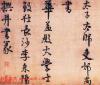 太子太師吏部尚
華蓋殿大學士
致仕長沙李東陽
撰并書篆